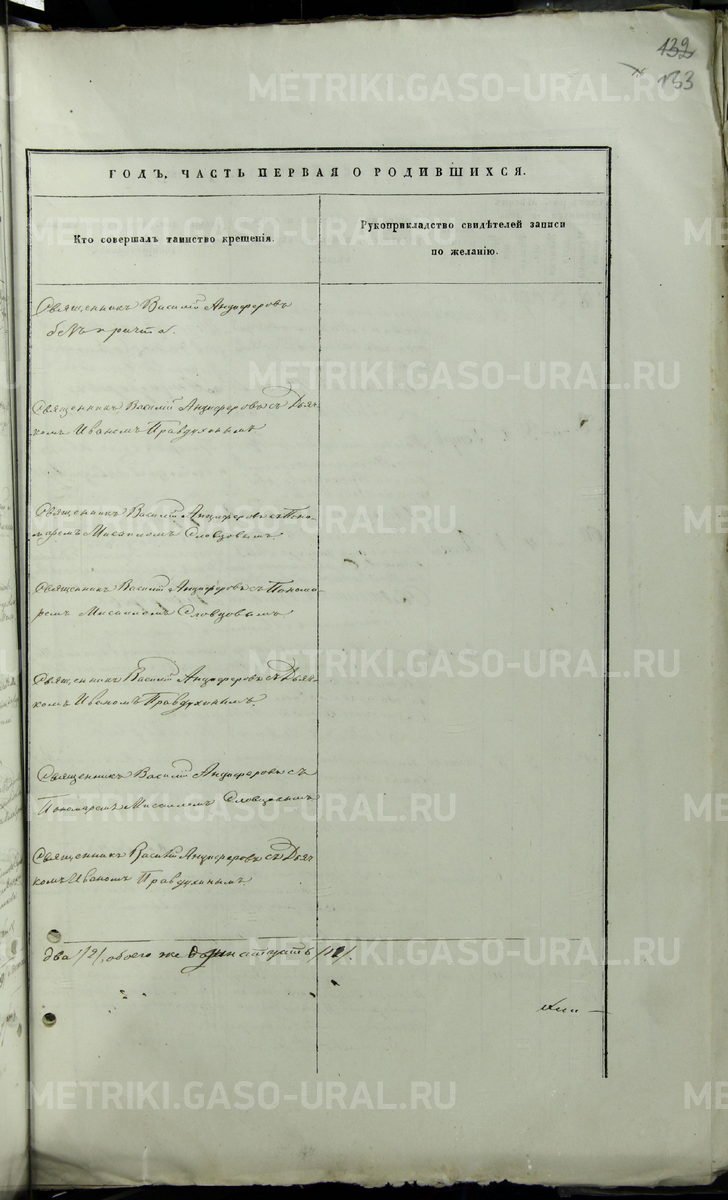 132
133
METRIKI.GASO-URAL.RU
ГОДЪ, ЧАСТЬ ПЕРВАЯ О РОДИВШИХСЯ.
Кто совершалъ таинство крещенія.
Рукоприкладство свидѣтелей записи
по желанію.
Священникъ Василій Анциферовъ
безъ причта.
Священникъ Василій Анциферовъ съ Дьяч-
комъ Иваномъ Правдухинымъ
Священникъ Василій Анциферовъ съ Поно-
маремъ Мисаиломъ Словцовымъ
Священникъ Василій Анциферовъ съ Понома-
ремъ Мисаиломъ Словцовымъ
Священникъ Василій Анциферовъ съ Дьяч-
комъ Иваномъ Правдухинымъ.
Священникъ Василій Анциферовъ съ
Пономаремъ Мисаиломъ Словцовымъ
Священникъ Василій Анциферовъ съ Дьяч-
комъ Иваномъ Правдухинымъ
два /2/, обоего же